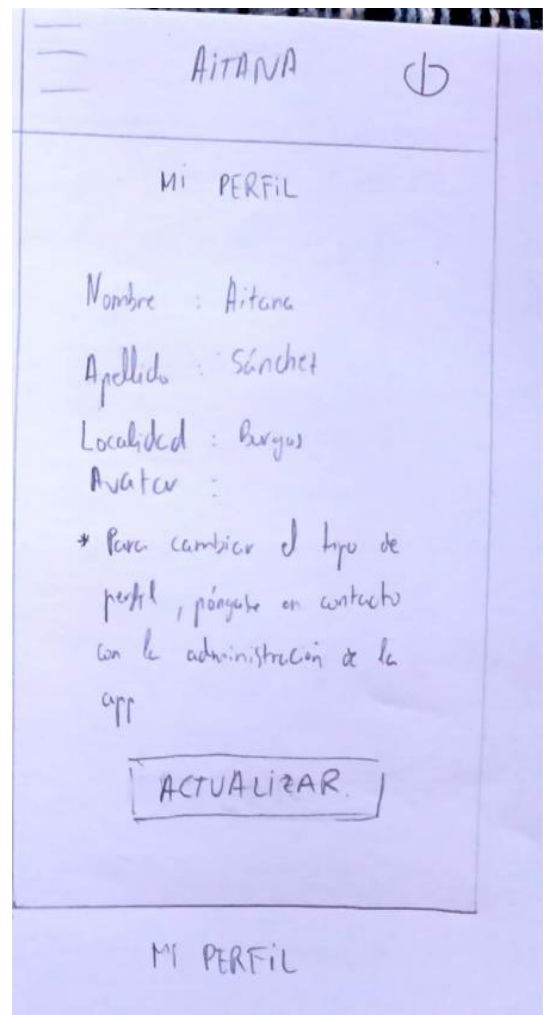 AiTANA
Mi PERFiL
Nombre : Aitana
Apellido : Sánchez
Localidad : Burgos
Avatar :
* Para cambiar el tipo de
perfil, póngase en contacto
con la administración de la
app
ACTUALiZAR.
Mi PERFiL